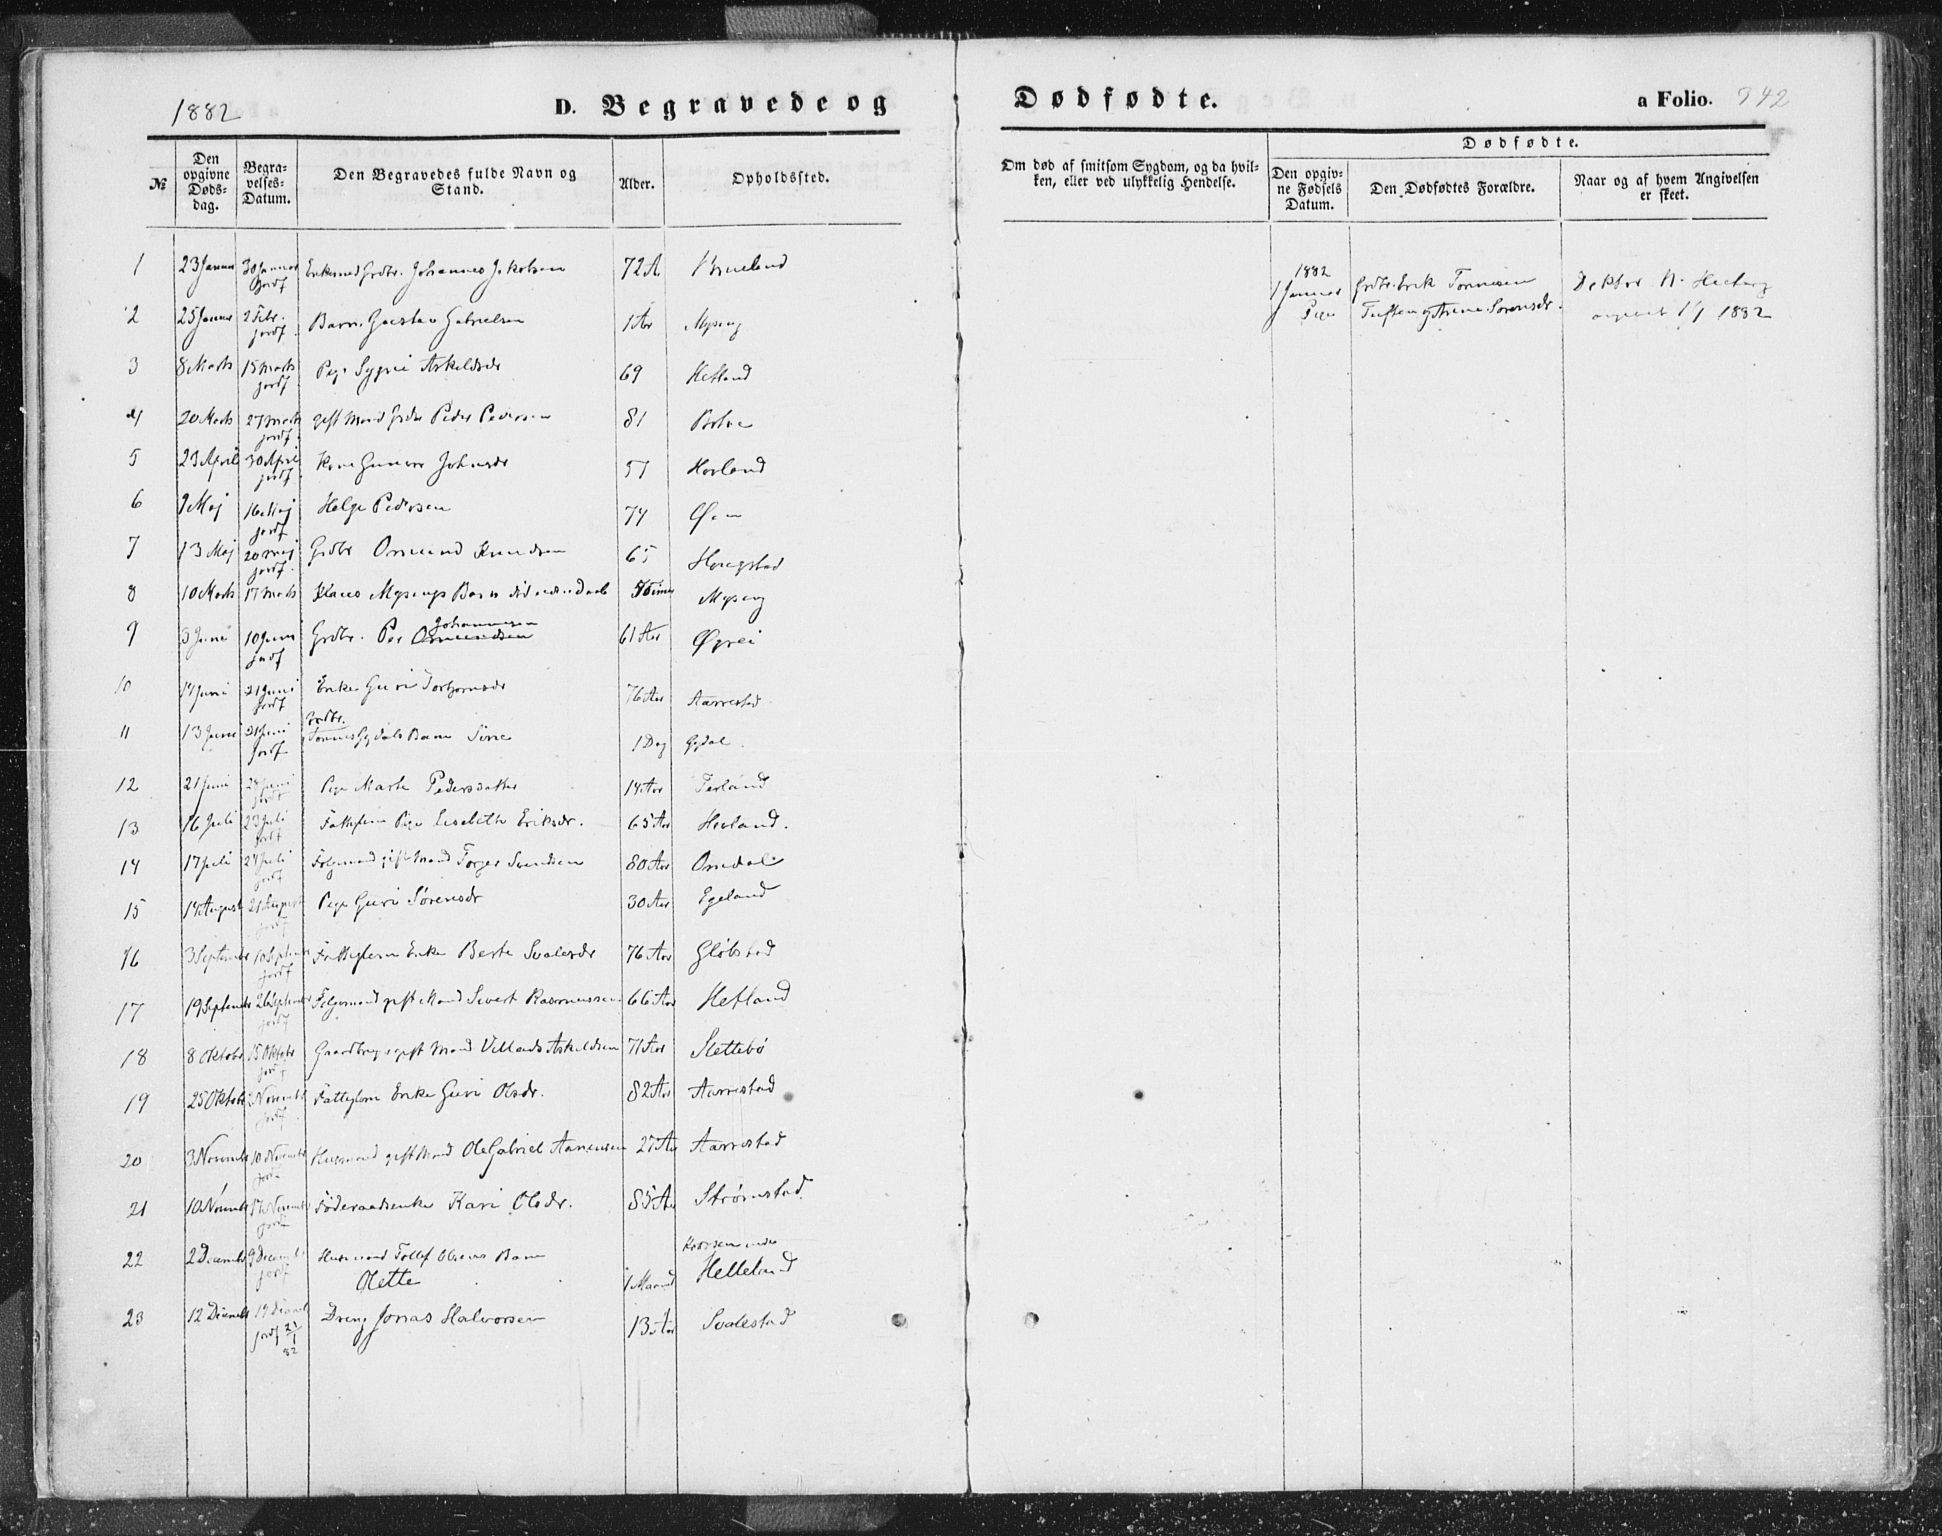 1882
D. Begravede og Dødfødte.
a Folio. 342
№
Den opgivne Døds-dag.
Begra-velses-Datum.
Den Begravedes fulde Navn og Stand.
Alder.
Opholdssted.
Om død af smitsom Sygdom, og da hvil-ken, eller ved ulykkelig Hendelse.
Dødfødte.
Den opgiv-ne Fødsels Datum.
Den Dødfødtes Forældre.
Naar og af hvem Angivelsen er skeet.
1 23 Januar 30 Januar jordf Enkemand Grdbr. Johannes Jakobsen 72 A
2 25 Januar 2 Febr. jordf. Barn Gustav Gabrielsen 1 Aar Myseng
3 8 Marts 15 Marts jordf Pige Sygni Askeldsdr 69 Hetland
4 20 Marts 27 Marts jordf. gift Mand Grdbr Peder Pedersen 81
5 23 April 30 April jordf. Kone Johnsdr 57 Hovland
6 9 Maj 16 Maj jordf Helge Pedersen 74
7 13 Maj 20 Maj jordf. Grdbr Omund Knudsen 65
8 10 Marts 17 Marts Klaus Mysengs Barn Timer Myseng
9 3 Juni 10 Juni jordf Grdbr. Per Johannesen 61 Aar Øgrei
10 14 Juni 21 Juni jordf Enke Guri Torbjørnsdr 76 Aar Aarrestad
11 13 Juni 21 Juni jordf Grdbr. Tønnes Gydals Barn Sine 1 Dag Gydal.
12 21 Juni 28 Juni jordf Pige Marte Pedersdatter 14 Aar Terland
13 16 Juli 23 Juli jordf Fattiglem Pige Elisabeth Eriksdr. 65 Aar Hovland.
14 17 Juli 24 Juli jordf Følgemand gift Mand Torger Svendsen 80 Aar Omdal
15 14 August 21 August jordf Pige Guri Sørensdr 30 Aar Egeland
16 3 September 10 September jordf Fattiglem Enke Berte Svalesdr 76 Aar Gløbstad
17 19 September 26 September jordf Følgemand gift Mand Sivert Rasmussen 66 Aar Hetland
18 8 Oktober 15 Oktobr jordf Gaardbruger gift Mand Villads Askeldsen 71 Aar Slettebø
19 25 Oktobr 2 Novembr jordf Fattiglem Enke Guri Olsdr. 82 Aar Aarrestad
20 3 Novembr 10 Novembr jordf Husmand gift Mand Ole Gabriel Aanensen 27 Aar Aarrestad
21 10 Novembr 17 Novembr jordf Føderaadsenke Kari Olsdr. 85 Aar Strømstad
22 2 Decembr 9 Decembr jordf Husmand Tollef Olsens Barn
Olette 1 Maaned under Helleland
23 12 Decembr 19 Decembr jordf 21/1 82 Dreng Jonas Halvorsen 13 Aar Svalestad
1882
1 Januar Grdbr. Erik Tønnesen Doktor N.
Pige Tuften og Anne Sørensdr. 1/1 1882